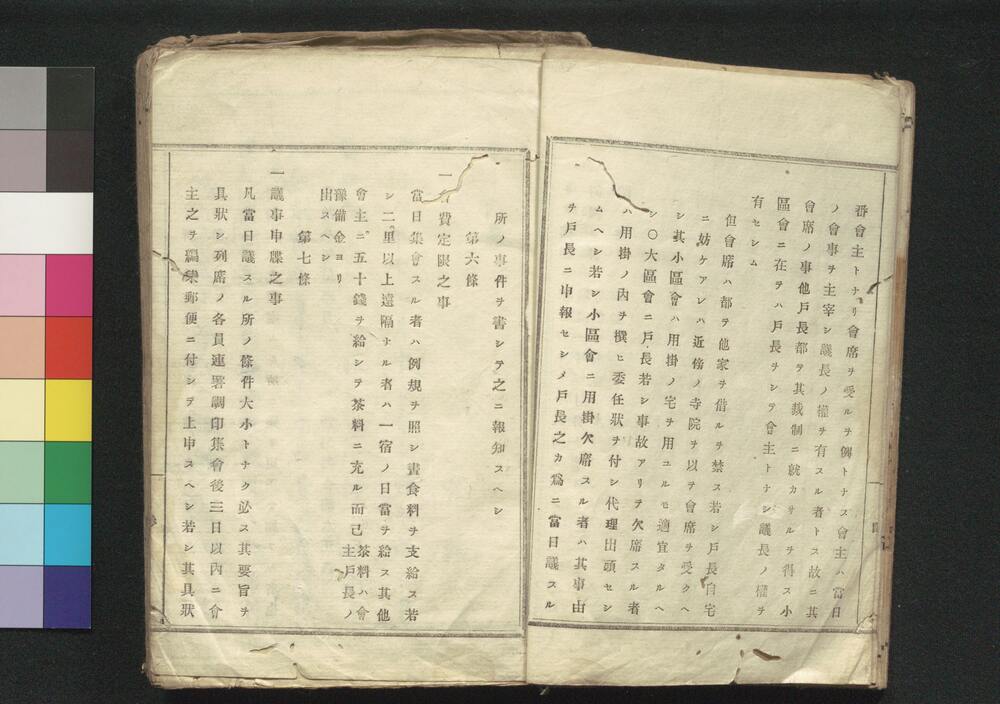 番會主トナリ會席ヲ受ルヲ例トナス會主ハ當日
ノ會事ヲ主宰シ議長ノ權ヲ有スル者トス故ニ其
會席ノ事他戸長都ヲ其裁制ニ就カサルヲ得ス小
區會ニ在テハ戸長ヲシテ會主トナシ議長ノ權ヲ
有セシム
但會席ハ都ヲ他家ヲ借ルヲ禁ス若シ戸長自宅
ニ妨ケアレハ近傍ノ寺院ヲ以ヲ會席ヲ受クヘ
シ其小區會ハ用掛ノ宅ヲ用ユルモ適宜タルヘ
シ〇大區會ニ戸長若シ事故アリヲ欠席スル者
ハ用掛ノ內ヲ撰ヒ委任狀ヲ付シ代理出頭セシ
ムヘシ若シ小區會ニ用掛欠席スル者ハ其事由
ヲ戸長ニ申報セシメ戸長之カ爲ニ當日議スル
所ノ事件ヲ書シテ之ニ報知スヘシ
第六條
一 費定限之事
當日集會スル者ハ例規ヲ照シ晝食料ヲ支給ス若
シ二里以上遠隔ナル者ハ一宿ノ日當ヲ給ス其他
會主ニ五十錢ヲ給シテ茶料ニ充ル而己茶料ハ會
主戸長ノ
豫備金ヨリ
出スヘシ
第七條
一議事申牒之事
凡當日議スル所ノ條件大小トナク必ス其要旨ヲ
具狀シ列席ノ各員連署調印集會後三日以內ニ會
主之ヲ編纂郵便ニ付シテ上申スヘシ若シ其具狀